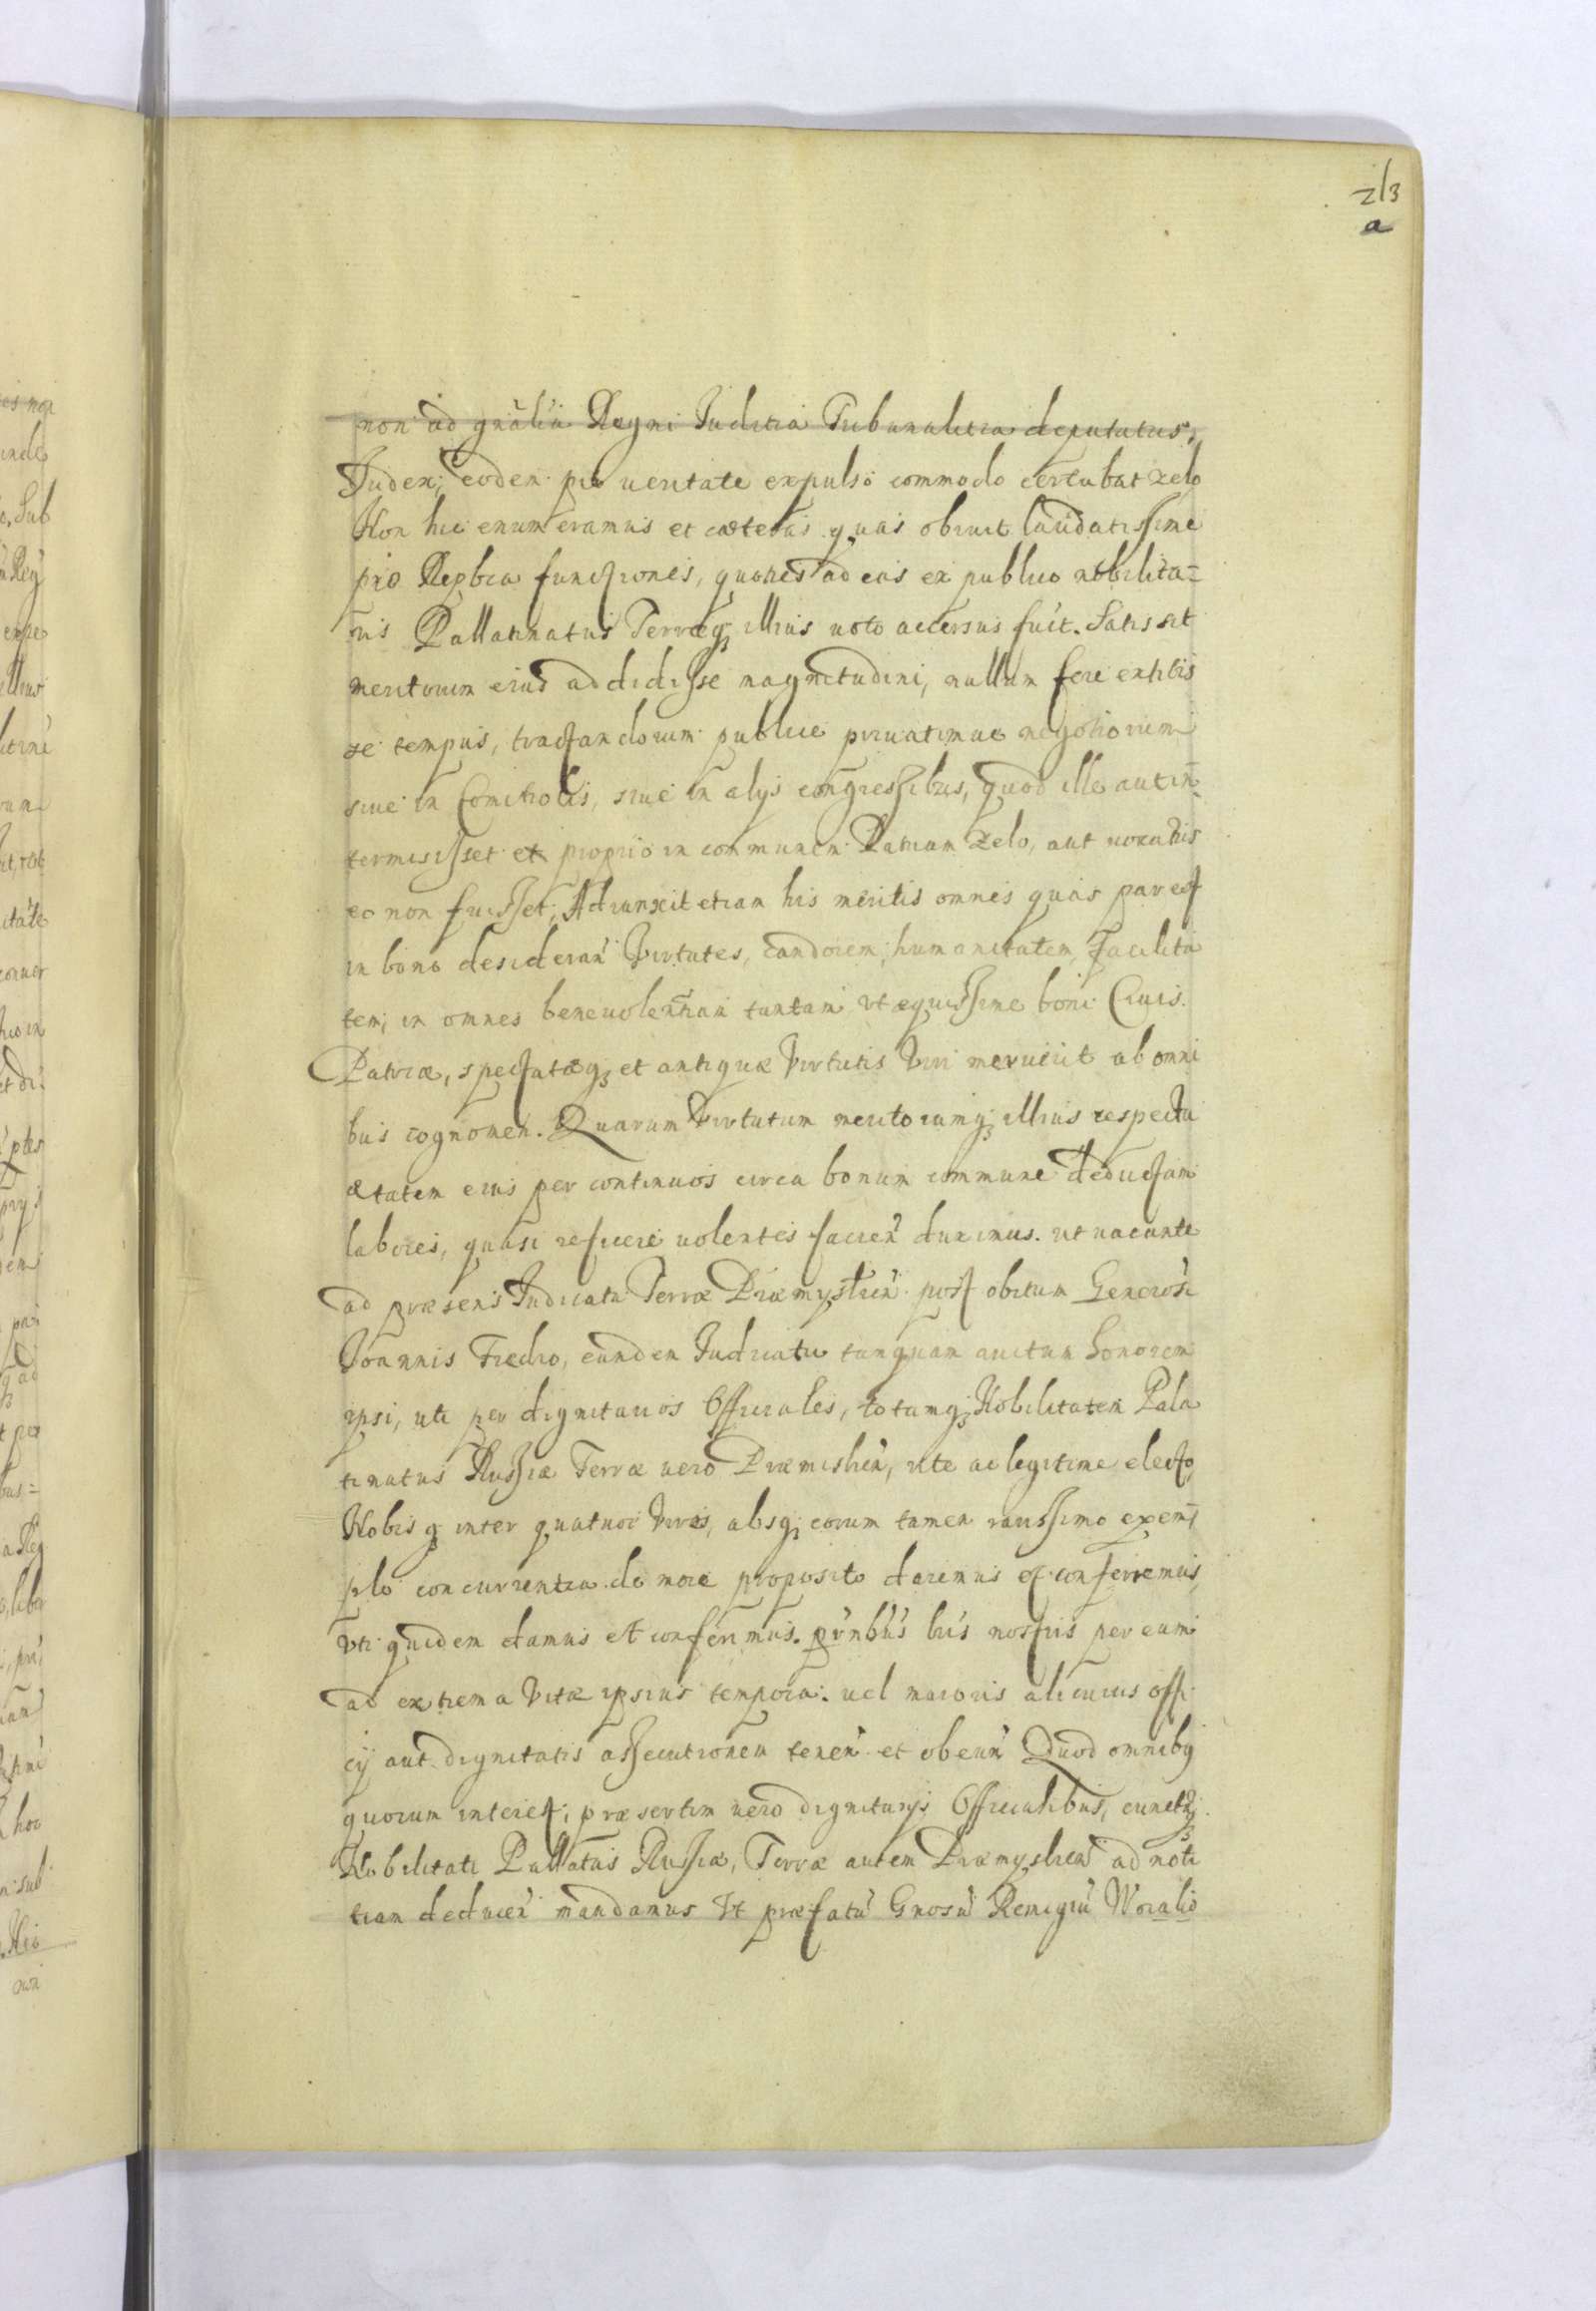 213
a
non ad gnãlia Regni Iuditia Tribunalitia deputatus,
Iudex, eodem pro ueritate expulso commodo certabat zelo
Non hic enumeramus et cæteras quas obiuit laudatissime
pro Repbca functiones, quoties ad eas ex publico nobilita=
tis Pallatinatus Terræq illius uoto accersus fuit. Satis sit
meritorum eius addidisse magnitudini, nullum fere extitis
se tempus, tractandorum publice priuatimue negotiorum
siue in Comitiolis, siue in alys congressibus, quod ille aut in=
termisisset et proprio in communem Patriam zelo, aut uocatus
eo non fuisset, Adiunxit etiam his meritis omnes quas par est
in bono desiderari Virtutes, candorem, humanitatem, Facilita
tem, in omnes beneuolentiam tantam vt æquissime boni Ciuis
Patriæ, spectatæq et antiquæ Virtutis Viri meruerit ab omni
bus cognomen. Quarum Virtutum meritorumq illius respectu
ætatem eius per continuos circa bonum commune deductam
labores, quasi reficere uolentes facien duximus. ut uacante
ad præsens Iudicatu Terræ Præmyslien post obitum Generosi
Joannis Fredro, eundem Iudicatu tanquam auctum honorem
ipsi, uti per dignitarios Officiales, totamq Nobilitatem Pala
tinatus Russiæ Terræ uero Præmislien, rite ac legitime electo
Nobis q inter quatuor Viros, absq eorum tamen rarissimo exem=
plo concurrentia de more proposito daremus et conferremus,
vti quidem damus et conferimus. prnbus lris nostris per eum
ad extrema Vitæ ipsius tempora. uel maioris alicuius offi
cij aut dignitatis assecutionem tenen et obeun Quod omnibq
quorum interest, præsertim uero dignitarijs Officialibus, cunctæq
Nobilitati Pallatus Russiæ, Terræ autem Præmyslien ad noti
tiam deducen mandamus Vt præfatu Gnosu Remigiu